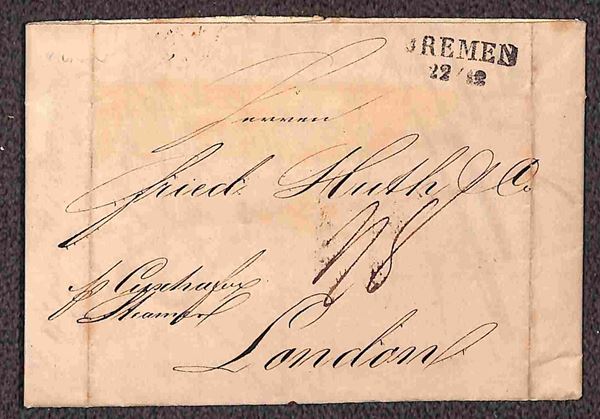 BREMEN
22/12
Herren
Fried. Huth & Co.
1/8
p Cuxhafen
Steamer
London